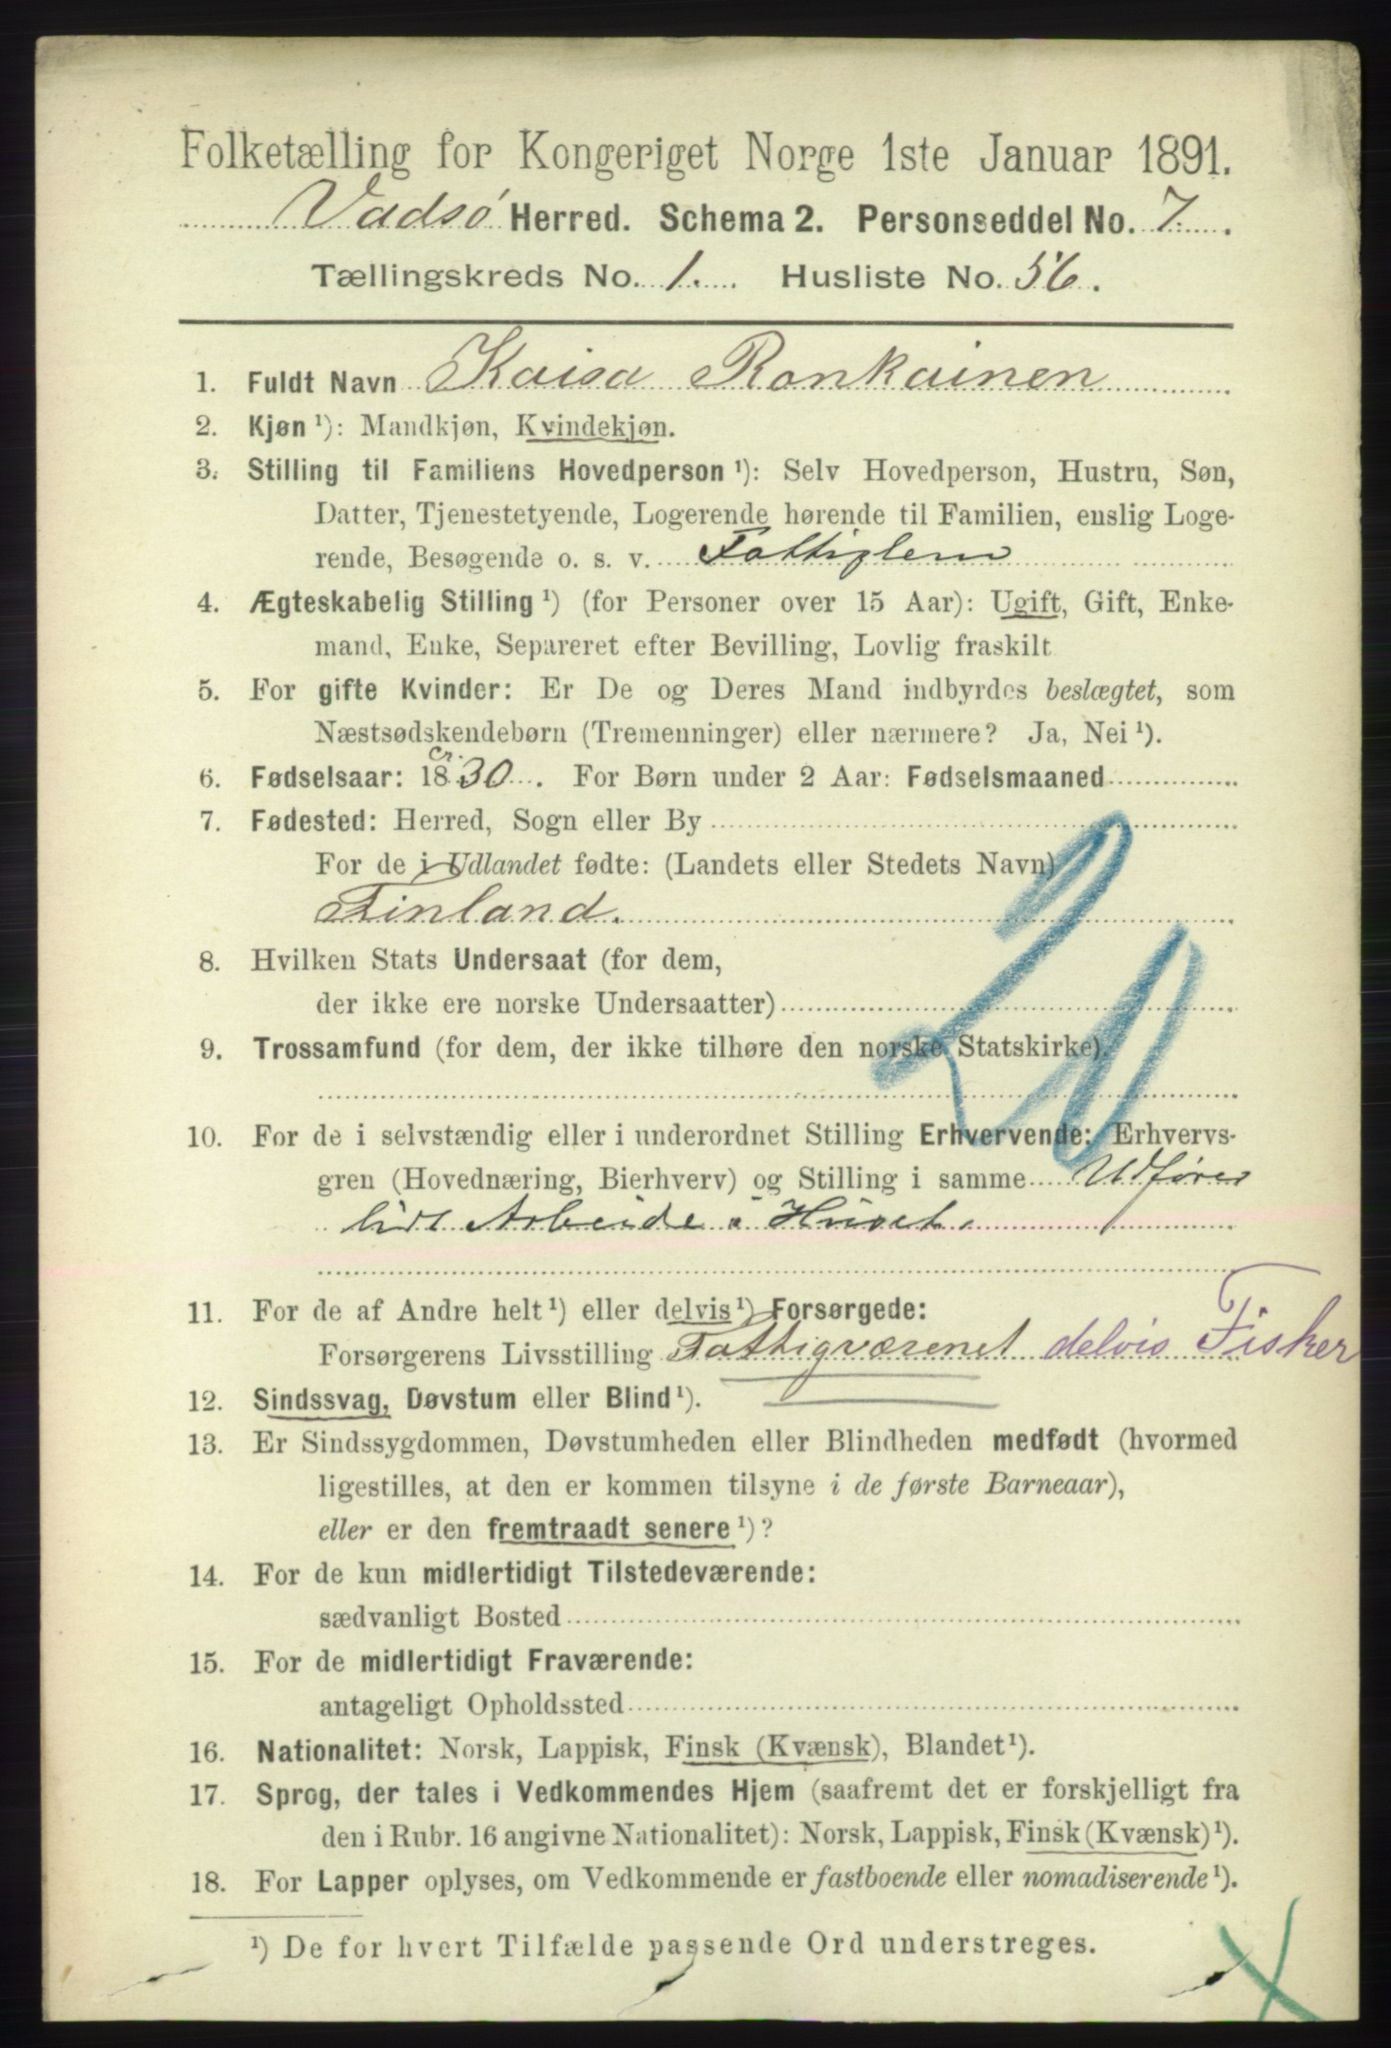 Folketælling for Kongeriget Norge 1ste Januar 1891.
Vadsø Herred. Schema 2. Personseddel No. 7.
Tællingskreds No. 1. Husliste No. 56.
1. Fuldt Navn Kaisa Ronkainen
2. Kjøn ¹): Mandkjøn, Kvindekjøn.
3. Stilling til Familiens Hovedperson ¹): Selv Hovedperson, Hustru, Søn,
Datter, Tjenestetyende, Logerende hørende til Familien, enslig Loge-
rende, Besøgende o. s. v. Fattiglem
4. Ægteskabelig Stilling ¹) (for Personer over 15 Aar): Ugift, Gift, Enke-
mand, Enke, Separeret efter Bevilling, Lovlig fraskilt
5. For gifte Kvinder: Er De og Deres Mand indbyrdes beslægtet, som
Næstsødskendebørn (Tremenninger) eller nærmere? Ja, Nei ¹).
cr.
6. Fødselsaar: 1830. For Børn under 2 Aar: Fødselsmaaned
7. Fødested: Herred, Sogn eller By
For de i Udlandet fødte: (Landets eller Stedets Navn)
Finland.
8. Hvilken Stats Undersaat (for dem,
der ikke ere norske Undersaatter)
9. Trossamfund (for dem, der ikke tilhøre den norske Statskirke).
10. For de i selvstændig eller i underordnet Stilling Erhvervende: Erhvervs-
gren (Hovednæring, Bierhverv) og Stilling i samme Udfører
lidt Arbeide i Huset.
11. For de af Andre helt ¹) eller delvis ¹) Forsørgede:
Forsørgerens Livsstilling Fattigvæsenet delvis Fisker
12. Sindssvag, Døvstum eller Blind ¹).
13. Er Sindssygdommen, Døvstumheden eller Blindheden medfødt (hvormed
ligestilles, at den er kommen tilsyne i de første Barneaar),
eller er den fremtraadt senere ¹)?
14. For de kun midlertidigt Tilstedeværende:
sædvanligt Bosted
15. For de midlertidigt Fraværende:
antageligt Opholdssted
16. Nationalitet: Norsk, Lappisk, Finsk (Kvænsk), Blandet ¹).
17. Sprog, der tales i Vedkommendes Hjem (saafremt det er forskjelligt fra
den i Rubr. 16 angivne Nationalitet): Norsk, Lappisk, Finsk (Kvænsk) ¹).
18. For Lapper oplyses, om Vedkommende er fastboende eller nomadiserende ¹).
¹) De for hvert Tilfælde passende Ord understreges.